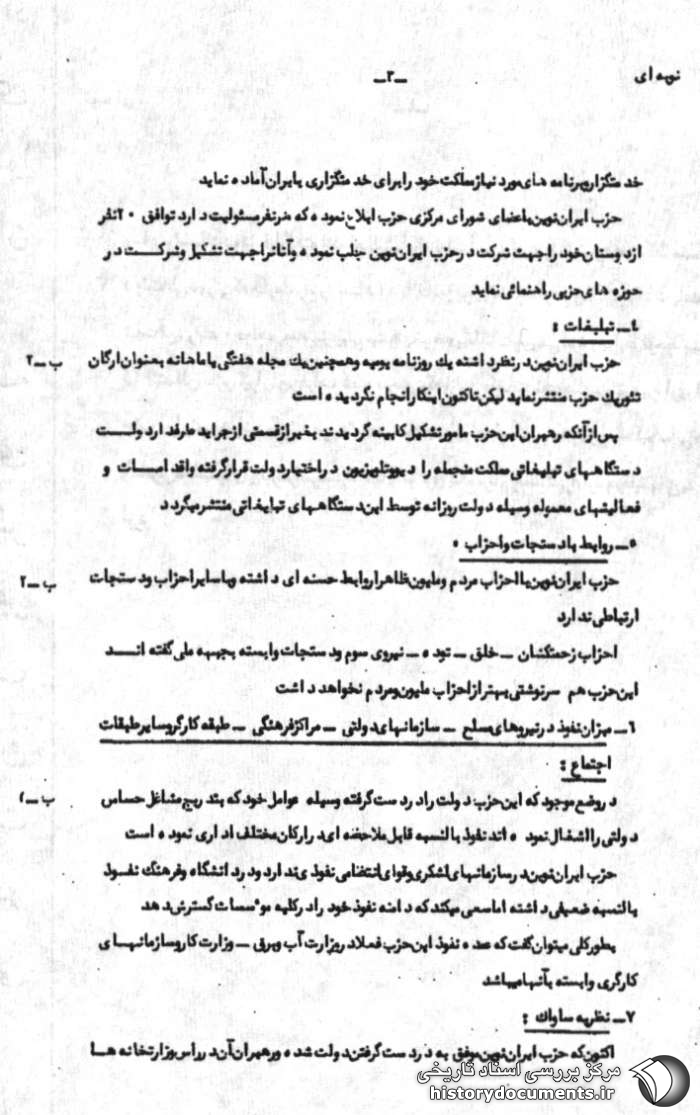 نوبه ای
ـ۳ـ
خدمتگزاربرنامه های مورد نیازمملکت خود رابرای خدمتگزاری بایران آماده نماید
حزب ایران نوین باعضای شورای مرکزی حزب ابلاغ نموده که هرنفرمسئولیت دارد توافق ۲۰نفر
ازدوستان خود راجهت شرکت درحزب ایران نوین جلب نموده وآنانراجهت تشکیل وشرکت در
حوزه های حزبی راهنمائی نماید
٤ـ تبلیغات :
حزب ایران نوین درنظرداشته یك روزنامه یومیه وهمچنین یك مجله هفتگی یاماهانه بعنوان ارگان
ب ـ۲
تئوریك حزب منتشرنماید لیکن تاکنون اینکارانجام نگردیده است
پس ازآنکه رهبران این حزب مامورتشکیل کابینه گردیدند بغیرازقسمتی ازجراید طرفدارد ولت
دستگاههای تبلیغاتی مملکت منجمله رادیووتلویزیون دراختیارد ولت قرارگرفته واقدامات و
فعالیتهای معموله وسیله دولت روزانه توسط این دستگاههای تبلیغاتی منتشرمیگردد
٥ـ روابط بادستجات واحزاب ۰
حزب ایران نوین بااحزاب مردم وملیون ظاهراروابط حسنه ای داشته وباسایراحزاب ودستجات
ب ـ۲
ارتباطی ندارد
احزاب زحمتکشان ـ خلق ـ توده ـ نیروی سوم ودستجات وابسته بجبهه ملی گفته انـد
این حزب هم سرنوشتی بهترازاحزاب ملیون ومردم نخواهد داشت
٦ـ میزان نفوذ درنیروهای مسلح ـ سازمانهای دولتی ـ مراکزفرهنگی ـ طبقه کارگروسایرطبقات
اجتماع :
دروضع موجود که این حزب دولت رادردست گرفته وسیله عوامل خود که بتدریج مشاغل حساس
ب ـ۱
دولتی رااشغال نموده اند نفوذ بالنسبه قابل ملاحضه ای درارکان مختلف اداری نموده است
حزب ایران نوین درسازمانهای لشکری وقوای انتظامی نفوذی ندارد ودردانشگاه وفرهنگ نفـوذ
بالنسبه ضعیفی داشته اماسعی میکند که دامنه نفوذ خود رادرکلیه موسسات گسترش دهد
بطورکلی میتوان گفت که عمده نفوذ این حزب فعلا دروزارت آب وبرق ـ وزارت کاروسازمانهـای
کارگری وابسته بآنهامیباشد
۷ـ نظریه ساواك :
اکنون که حزب ایران نوین موفق به دردست گرفتن دولت شده ورهبران آن دررأس وزارتخانه هـا
مرکز بررسی اسناد تاریخی
historydocuments.ir